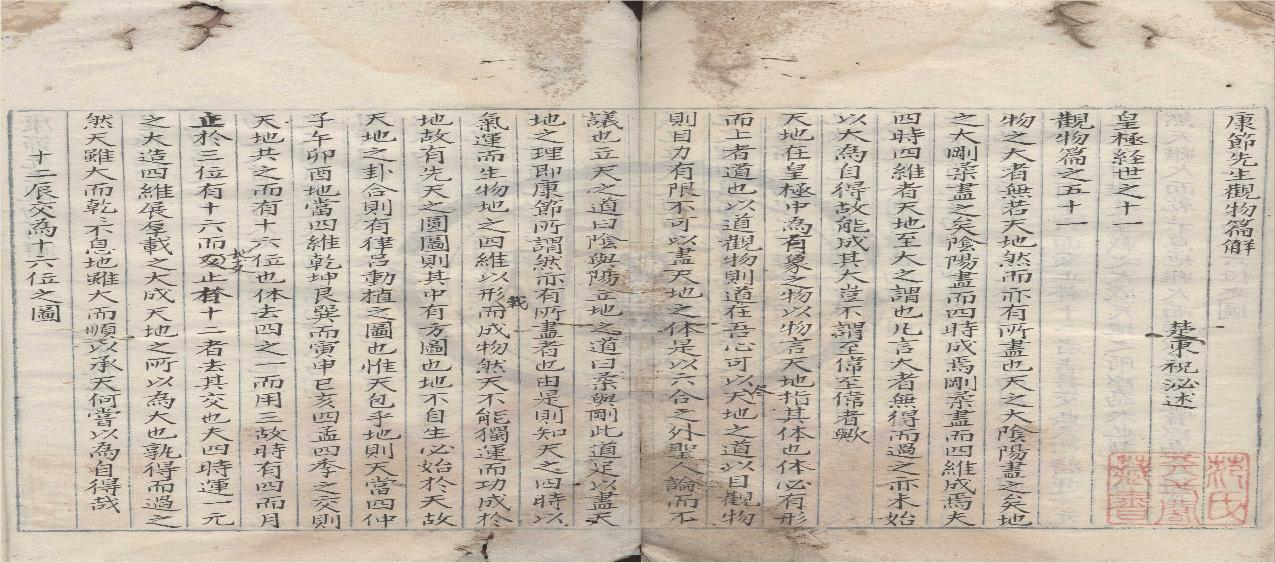 康節先生觀物篇解
楚東祝泌述
皇極経世之十一
觀物篇之五十一
物之大者無若天地然而亦有所盡也天之大陰陽盡之矣地
之大剛柔盡之矣陰陽盡而四時成焉剛柔盡而四維成焉夫
四時四維者天地至大之謂也凡言大者無得而過之亦未始
以大為自得故能成其大豈不謂至偉至偉者歟
天地在皇極中為有象之物以物言天地指其体也体必有形
而上者道也以道觀物則道在吾心可以人天地之道以目觀物
則目力有限不可以盡天地之体是以六合之外聖人論而不
議也立天之道曰陰與陽立地之道曰柔與剛此道足以盡天
地之理即康節所謂然亦有所盡者也由是則知天之四時以
氣運而生物地之四維以形載而成物然天不能獨運而功成於
地故有先天之圖圖則其中有方圖也地不自生必始於天故
天地之卦合則有律呂動植之圖也惟天包乎地則天當四仲
子午卯酉地當四維乾坤艮巽而寅申巳亥四孟四季之交則
天地共之而有十六位也体去四之一而用三故時有四而月
止於三位有十六而辰止於十二者去其交也夫四時運一元
之大造四維展羣載之大成天地之所以為大也孰得而過之
然天雖大而乾不息地雖大而順以承天何嘗以為自得哉
十二辰交為十六位之圖